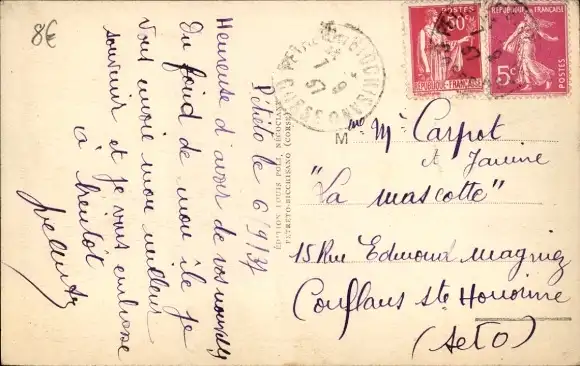 8€
Petreto le 6/9/37
Heureuse d'avoir de vos nouvelles
Du fond de mon île je
vous envoie mon meilleur
souvenir et je vous embrasse
à bientôt
ÉDITION LOUIS POLI, NÉGOCIANT
PETRETO-BICCHISANO (CORSE)
PETRETO-BICCHISANO
CORSE
POSTES
50c
RÉPUBLIQUE FRANÇAISE
RÉPUBLIQUE FRANÇAISE
5c
POSTES
M
me Mr Carpot
et Janine
"La mascotte"
15 Rue Edmond Magnez
Conflans Ste Honorine
(S et O)